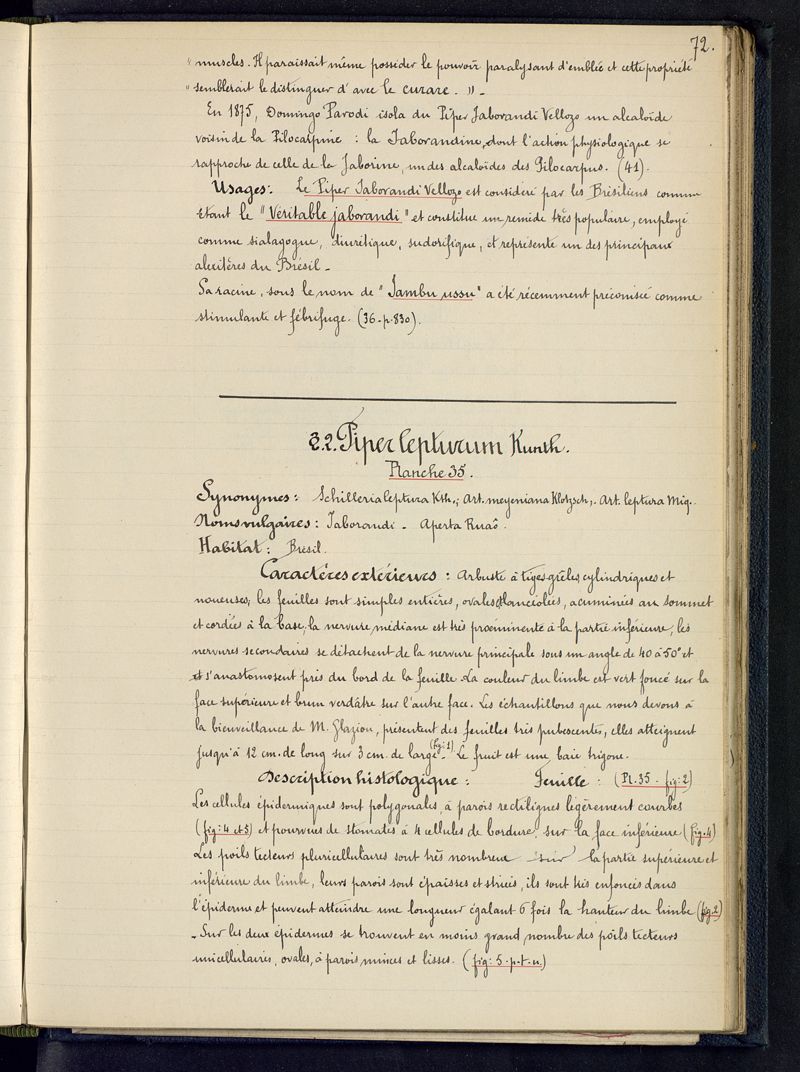 72.
" muscles. Il paraissait même posséder le pouvoir paralysant d'emblée et cette propriété
" semblerait le distinguer d'avec le curare. " -
En 1875, Domingo Parodi isola du Piper Jaborandi Vellozo un alcaloïde
voisin de la Pilocarpine : la Jaborandine, dont l'action physiologique se
rapproche de celle de la Jaborine, un des alcaloïdes des Pilocarpus. (41).
Usages: Le Piper Jaborandi Vellozo est considéré par les Brésiliens comme
étant le "Véritable jaborandi" et constitue un remède très populaire, employé
comme sialagogue, diurétique, sudorifique, et représente un des principaux
alexitères du Brésil -
Sa racine, sous le nom de "Jambu ussu" a été récemment préconisée comme
stimulante et fébrifuge. (36 - p. 830).
2.2. Piper lepturum Kunth.
Planche 35.
Synonymes: Schilleria leptura Kth.; Art. meyeniana Klotzsch;. Art. leptura Miq.
Noms vulgaires: Jaborandi - Aperta Ruaõ.
Habitat: Brésil.
Caractères extérieurs: Arbuste à tiges grêles cylindriques et
noueuses; les feuilles sont simples entières, ovales lancéolées, acuminées au sommet
et cordées à la base, la nervure médiane est très proéminente à la partie inférieure, les
nervures secondaires se détachent de la nervure principale sous un angle de 40 à 50° et
et s'anastomosent près du bord de la feuille. La couleur du limbe est vert foncé sur la
face supérieure et brun verdâtre sur l'autre face. Les échantillons que nous devons à
la bienveillance de M. Glaziou, présentent des feuilles très pubescentes, elles atteignent
jusqu'à 12 cm. de long sur 3 cm. de large (fig: 1) - Le fruit est une baie trigone.
Description histologique: Feuille: (Pl. 35 - fig: 2)
Les cellules épidermiques sont polygonales, à parois rectilignes légèrement courbes
(fig: 4 et 5) et pourvues de stomates à 4 cellules de bordure, sur la face inférieure (fig. 4)
Les poils tecteurs pluricellulaires sont très nombreux sur la partie supérieure et
inférieure du limbe, leurs parois sont épaisses et striées, ils sont très enfoncés dans
l'épiderme et peuvent atteindre une longueur égalant 6 fois la hauteur du limbe (fig. 2)
- Sur les deux épidermes se trouvent en moins grand nombre des poils tecteurs
unicellulaires, ovales, à parois minces et lisses. (fig: 5 - p.t.u.)